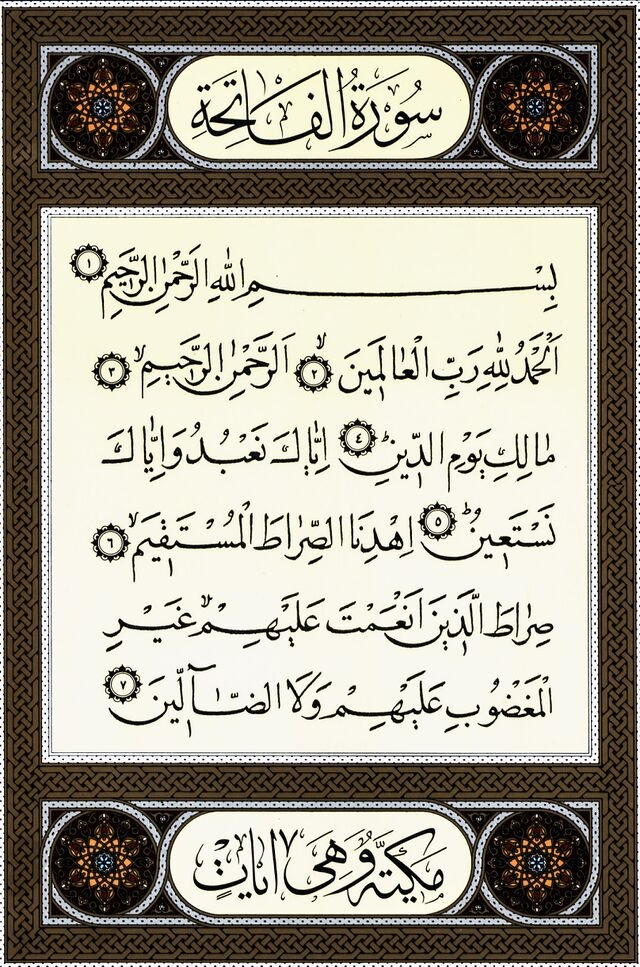 سُورَةُ الْفَاتِحَةِ
بِسْمِ اللّٰهِ الرَّحْمٰنِ الرَّحِيمِ ١
اَلْحَمْدُ لِلّٰهِ رَبِّ الْعَالَمِينَۙ ٢ اَلرَّحْمٰنِ الرَّحِيمِۙ ٣
مَالِكِ يَوْمِ الدِّينِۜ ٤ اِيَّاكَ نَعْبُدُ وَاِيَّاكَ
نَسْتَعِينُۜ ٥ اِهْدِنَا الصِّرَاطَ الْمُسْتَقِيمَۙ ٦
صِرَاطَ الَّذِينَ اَنْعَمْتَ عَلَيْهِمْۙ غَيْرِ
الْمَغْضُوبِ عَلَيْهِمْ وَلَا الضَّآلِّينَ ٧
مَكِّيَّةٌ وَهِىَ ٧ اٰيَاتٍ